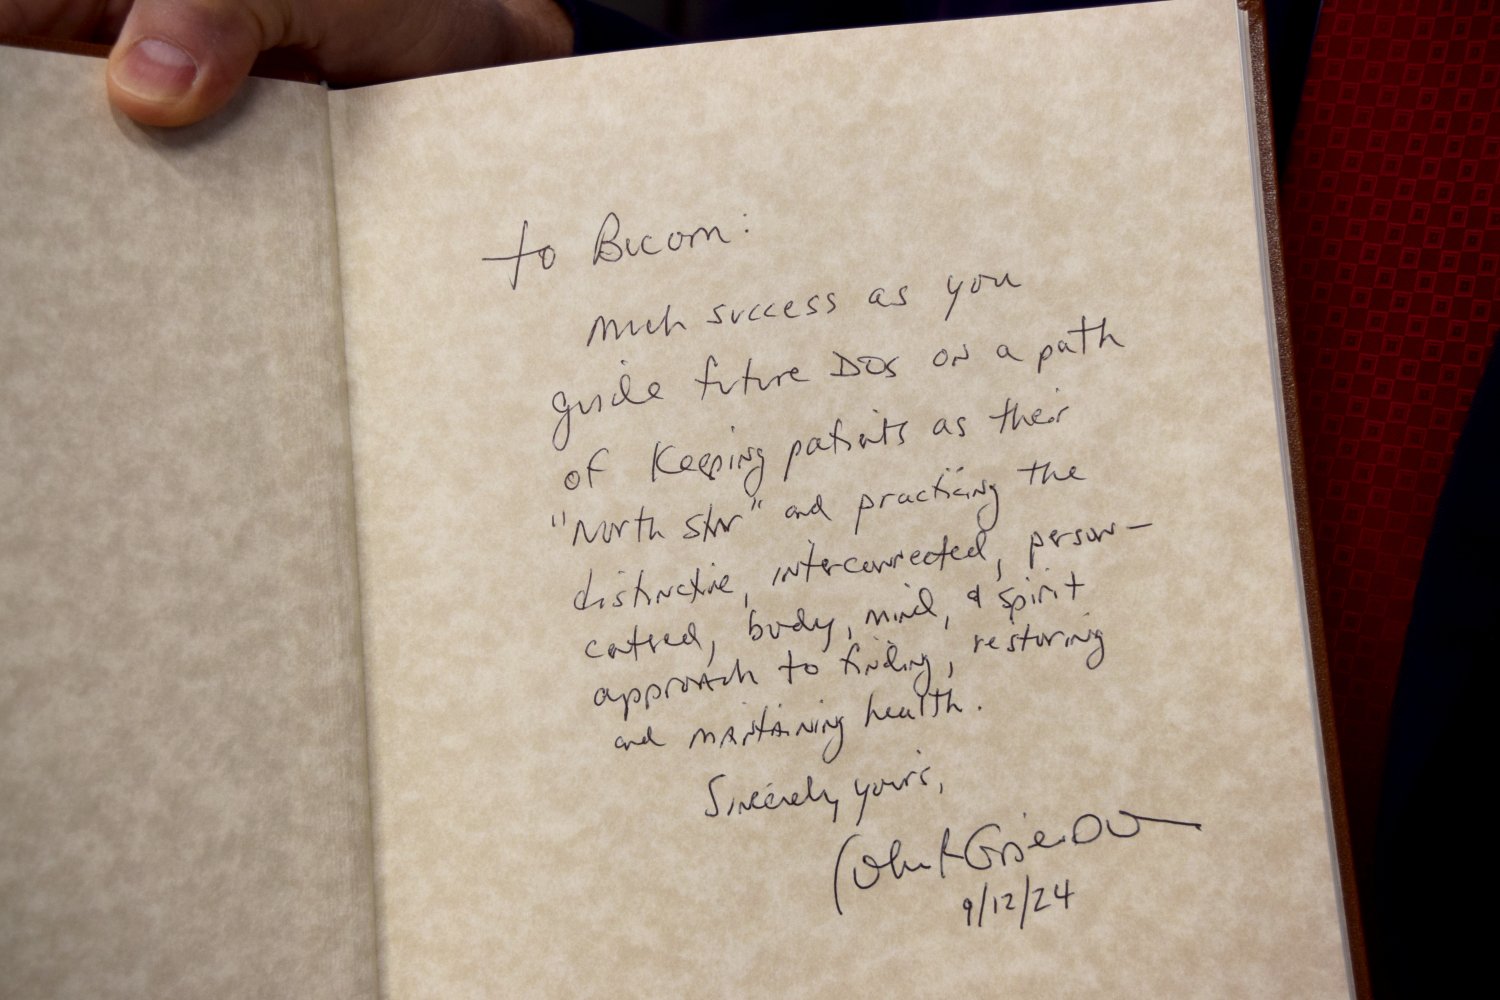 To Bucom:
Much success as you
guide future DOs on a path
of Keeping patients as their
"North Star" and practicing the
distinctive, interconnected, person-
centered, body, mind, & spirit
approach to finding, restoring
and maintaining health.
Sincerely yours,
John
9/12/24